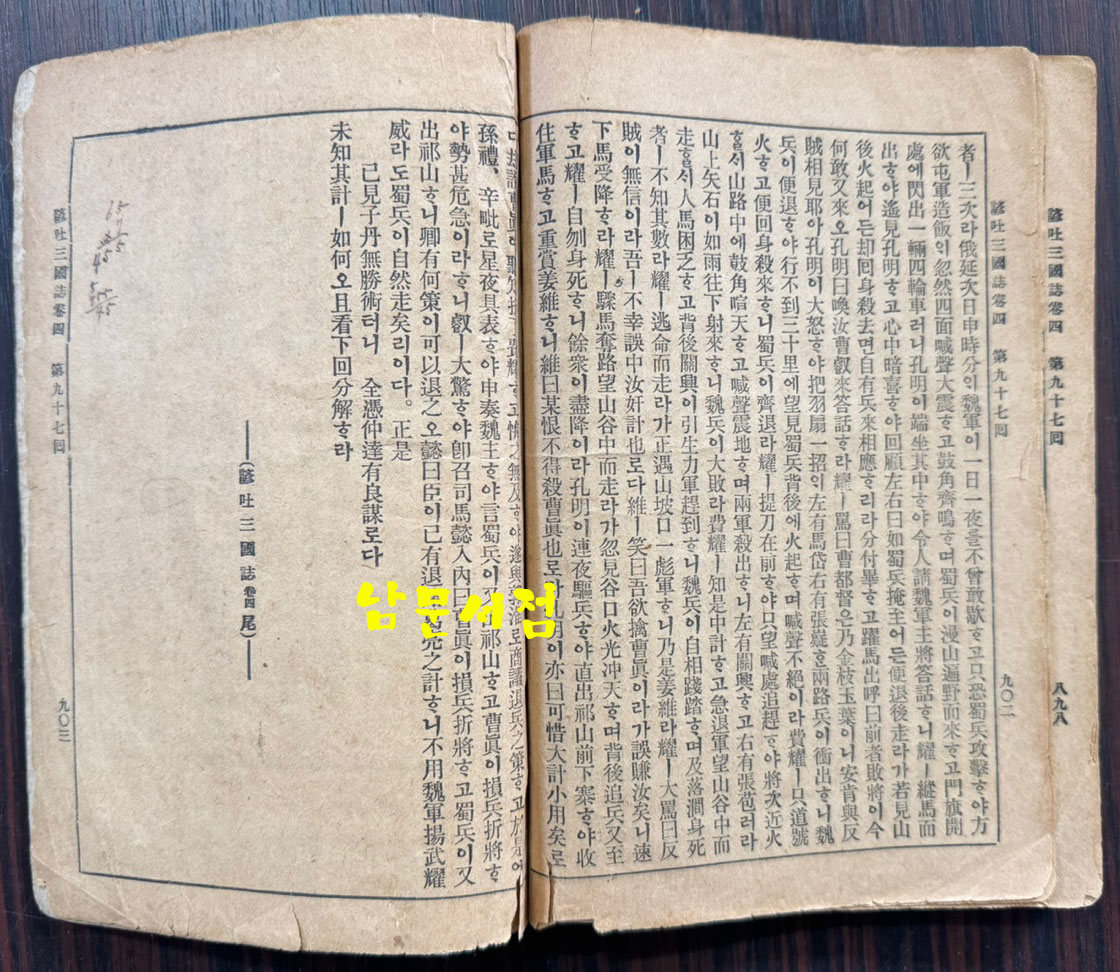 諺吐三國誌卷四 第九十七回
八九八
諺吐三國誌卷四 第九十七回
九〇二
者ㅣ三次라俄延次日申時分의魏軍이一日一夜를不曾敢歇ᄒᆞ고只恐蜀兵攻擊ᄒᆞ야方
欲屯軍造飯의忽然四面喊聲大震ᄒᆞ고鼓角齊鳴ᄒᆞ며蜀兵이漫山遍野而來ᄒᆞ고門旗開
處에閃出一輛四輪車러니孔明이端坐其中ᄒᆞ야令人請魏軍主將答話ᄒᆞ니耀ㅣ縱馬而
出ᄒᆞ야遙見孔明ᄒᆞ고心中暗喜ᄒᆞ야回顧左右曰如蜀兵掩至어든便退後走라가若見山
後火起어든却回身殺去면自有兵來相應ᄒᆞ리라分付畢ᄒᆞ고躍馬出呼曰前者敗將이今
何敢又來오孔明曰喚汝曹叡來答話ᄒᆞ라耀ㅣ罵曰曹都督은乃金枝玉葉이니安肯與反
賊相見耶아孔明이大怒ᄒᆞ야把羽扇一招의左有馬岱右有張嶷ᄒᆞ고兩路兵이衝出ᄒᆞ니魏
兵이便退ᄒᆞ야行不到三十里에望見蜀兵背後에火起ᄒᆞ며喊聲不絕이라費耀ㅣ只道號
火ᄒᆞ고便回身殺來ᄒᆞ니蜀兵이齊退라耀ㅣ提刀在前ᄒᆞ야只望喊處追趕ᄒᆞ야將次近火
ᄒᆞᆯᄉᆡ山路中에鼓角喧天ᄒᆞ고喊聲震地ᄒᆞ며兩軍殺出ᄒᆞ니左有關興ᄒᆞ고右有張苞러라
山上矢石이如雨往下射來ᄒᆞ니魏兵이大敗라費耀ㅣ知是中計ᄒᆞ고急退軍望山谷中而
走ᄒᆞᆯᄉᆡ人馬困乏ᄒᆞ고背後關興이引生力軍趕到ᄒᆞ니魏兵이自相踐踏ᄒᆞ며及落澗身死
者ㅣ不知其數라耀ㅣ逃命而走라가正遇山坡口一彪軍ᄒᆞ니乃是姜維라耀ㅣ大罵曰反
賊이無信이라吾ㅣ不幸誤中汝奸計也로다維ㅣ笑曰吾欲擒曹眞이라가誤賺汝矣니速
下馬受降ᄒᆞ라耀ㅣ驟馬奪路望山谷中而走라가忽見谷口火光冲天ᄒᆞ며背後追兵又至
ᄒᆞ고耀ㅣ自刎身死ᄒᆞ니餘衆이盡降이라孔明이連夜驅兵ᄒᆞ야直出祁山前下寨ᄒᆞ야收
住軍馬ᄒᆞ고重賞姜維ᄒᆞ니維曰某恨不得殺曹眞也로다孔明이亦曰可惜大計小用矣로
孫禮、辛毗로星夜具表ᄒᆞ야申奏魏主ᄒᆞ야言蜀兵이又出祁山ᄒᆞ고曹眞이損兵折將ᄒᆞ
야勢甚危急이라ᄒᆞ니叡ㅣ大驚ᄒᆞ야卽召司馬懿入內曰曹眞이損兵折將ᄒᆞ고蜀兵이又
出祁山ᄒᆞ니卿有何策이可以退之오懿曰臣이已有退之計ᄒᆞ니不用魏軍揚武耀
威라도蜀兵이自然走矣리이다。正是
己見子丹無勝術러니 全憑仲達有良謀로다
未知其計ㅣ如何오且看下回分解ᄒᆞ라
(諺吐三國誌 卷四 尾)
諺吐三國誌卷四 第九十七回
九〇三
남문서점